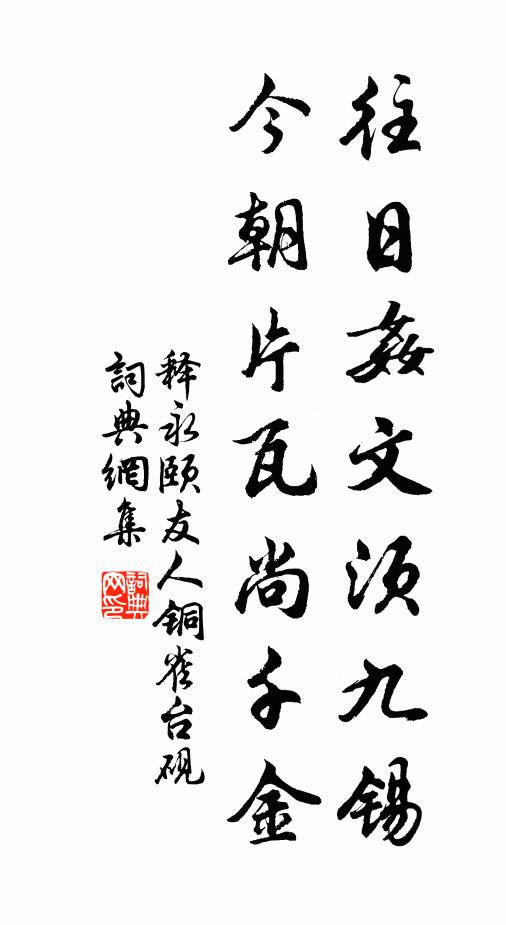 往日姦文須九錫
今朝片瓦尚千金
释永颐友人铜雀台砚
詞典網集
詞典網印